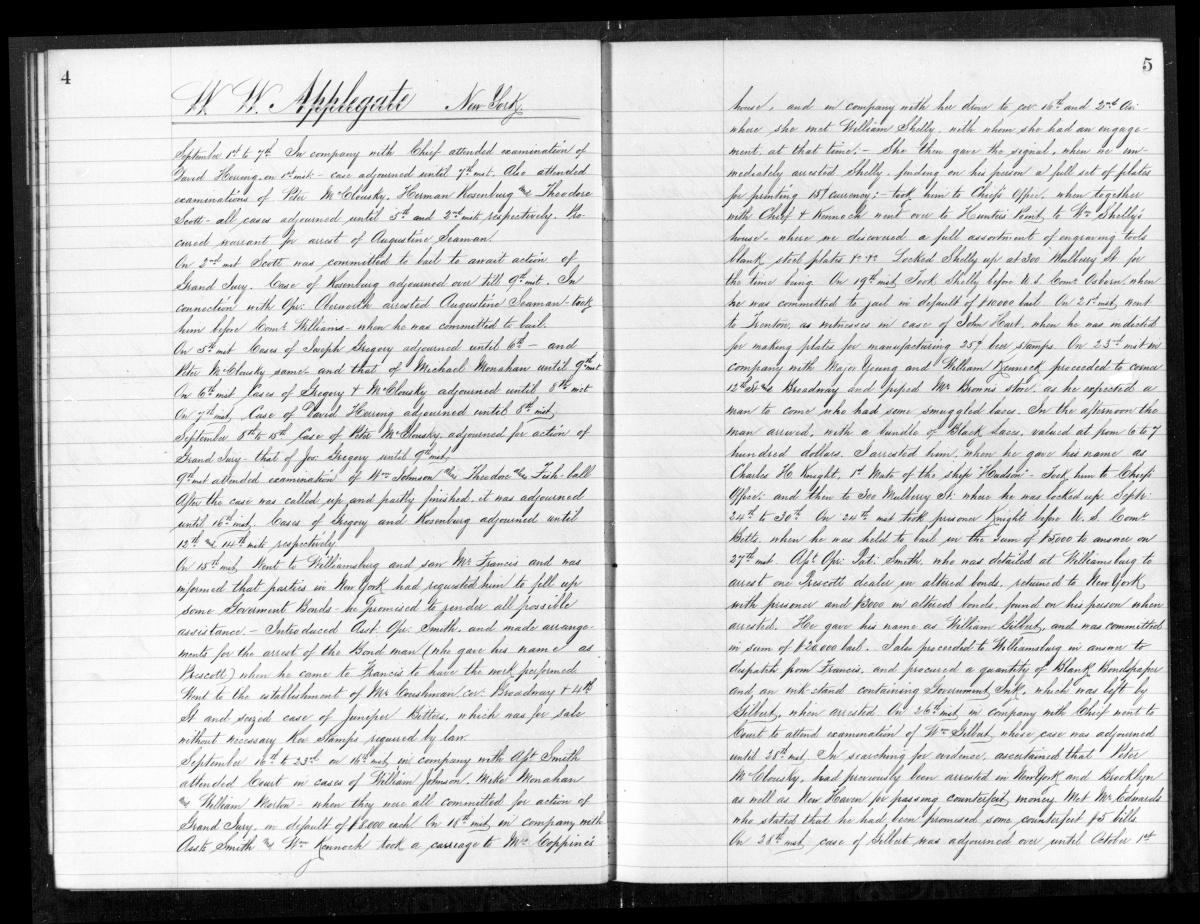 4
W. W. Applegate New York
September 1st to 7th In company with Chief attended examination of
David Hering, on 1st inst - case adjourned until 7th inst. Also attended
examinations of Peter McClousky, Herman Rosenburg and Theodore
Scott - all cases adjourned until 5th and 2nd insts respectively. Pro-
cured warrant for arrest of Augustine Seaman.
On 2nd inst Scott was committed to bail to await action of
Grand Jury. Case of Rosenburg adjourned over till 9th inst. In
connection with Opr. arrested Augustine Seaman - took
him before Comr Williams - when he was committed to bail.
On 5th inst Cases of Joseph Gregory adjourned until 6th - and
Peter McClousky same - and that of Michael Monahan until 9th inst
On 6th inst Cases of Gregory & McClousky adjourned until 8th inst
On 7th inst, Case of David Hering adjourned until 8th inst,
September 8th to 15th Case of Peter McClousky, adjourned for action of
Grand Jury - that of Jos. Gregory until 9th inst,
9th inst attended examination of Wm Johnson and Theodoe and Fish-ball
After the case was called up and partly finished it was adjourned
until 16th inst. Cases of Gregory and Rosenburg adjourned until
12th and 14th insts respectively
On 15th inst, Went to Williamsburg and saw Mr Francis and was
informed that parties in New York had requsted him to fill up
some Goverment Bonds - he promised to render all possible
assistance. - Introduced Asst. Opr. Smith, and made arrange-
ments for the arrest of the Bond man (who gave his name as
Prescott) when he came to Francis to have the work performed
Went to the establishment of Mr Coushman cor. Broadway & 4th
St and seized case of Juniper Bitters, which was for sale
without necessary Rev Stamps required by law.
September 16th to 23rd on 16th inst, in company with Asst Smith
attended Court in cases of William Johnson, Mike Monahan
and William Morton - when they were all committed for action of
Grand Jury, in default of $8.000 each On 18th inst, in company with
Assts Smith and Wm Kennoch took a carriage to Mrs Coppine's
5
house, and in company with her drove to cor 16th and 2nd Av:
where she met William Shelly, with whom she had an engage-
ment, at that time. - She then gave the signal, when we im-
mediately arrested Shelly, finding on his person a full set of plates
for printing 15¢ currency; - took him to Chiefs Office, when together
with Chief & Kennoch went over to Hunters Point, to Wm Shelly's
house - where we discovered a full assortment of engraving tools
blank steel plates &c &c Locked Shelly up at 300 Mulberry St for
the time being. On 19th inst, Took Shelly before U.S. Comr Osborn when
he was committed to jail in default of $10000 bail On 21st inst, went
to Trenton, as witnesses in case of John Hart, when he was indicted
for making plates for manufacturing 25¢ beer stamps. On 23rd inst in
company with Major Young and William Kennock proceeded to corner
12th St and Broadway and Mr Browns store, as he expected a
man to come who had some smuggled laces. In the afternoon the
man arrived, with a bundle of Black Laces, valued at from 6 to 7
hundred dollars. I arrested him, when he gave his name as
Charles H. Knight, 1st Mate of the ship "Hudson" - Took him to Chiefs
Office; and then to 300 Mulberry St. where he was locked up Sept:
24th to 30th On 24th inst took prisoner Knight before U. S. Comr
Betts, when he was held to bail in the sum of $5000 to answer on
27th inst Asst Opr. Pat: Smith, who was detailed at Williamsburg to
arrest one Prescott dealer in altered bonds, returned to New York
with prisoner and $3000 in altered bonds, found on his person when
arrested. He gave his name as William Gilbert, and was committed
in sum of $20.000 bail. I also proceeded to Williamsburg in answer to
dispatch from Francis, and procured a quantity of Blank Bondpaper
and an ink stand containing Government Ink, which was left by
Gilbert, when arrested. On 26th inst, in company with Chief went to
Court to attend examination of Wm Gilbert, whose case was adjourned
until 28th inst, In searching for evidence, ascertained that Peter
McClousky, had previously been arrested in New York and Brooklyn
as well as New Haven for passing counterfeit money. Met Mr Edwards
who stated that he had been promised some counterfeit $5 bills
On 28th inst, case of Gilbert was adjourned over until October 1st